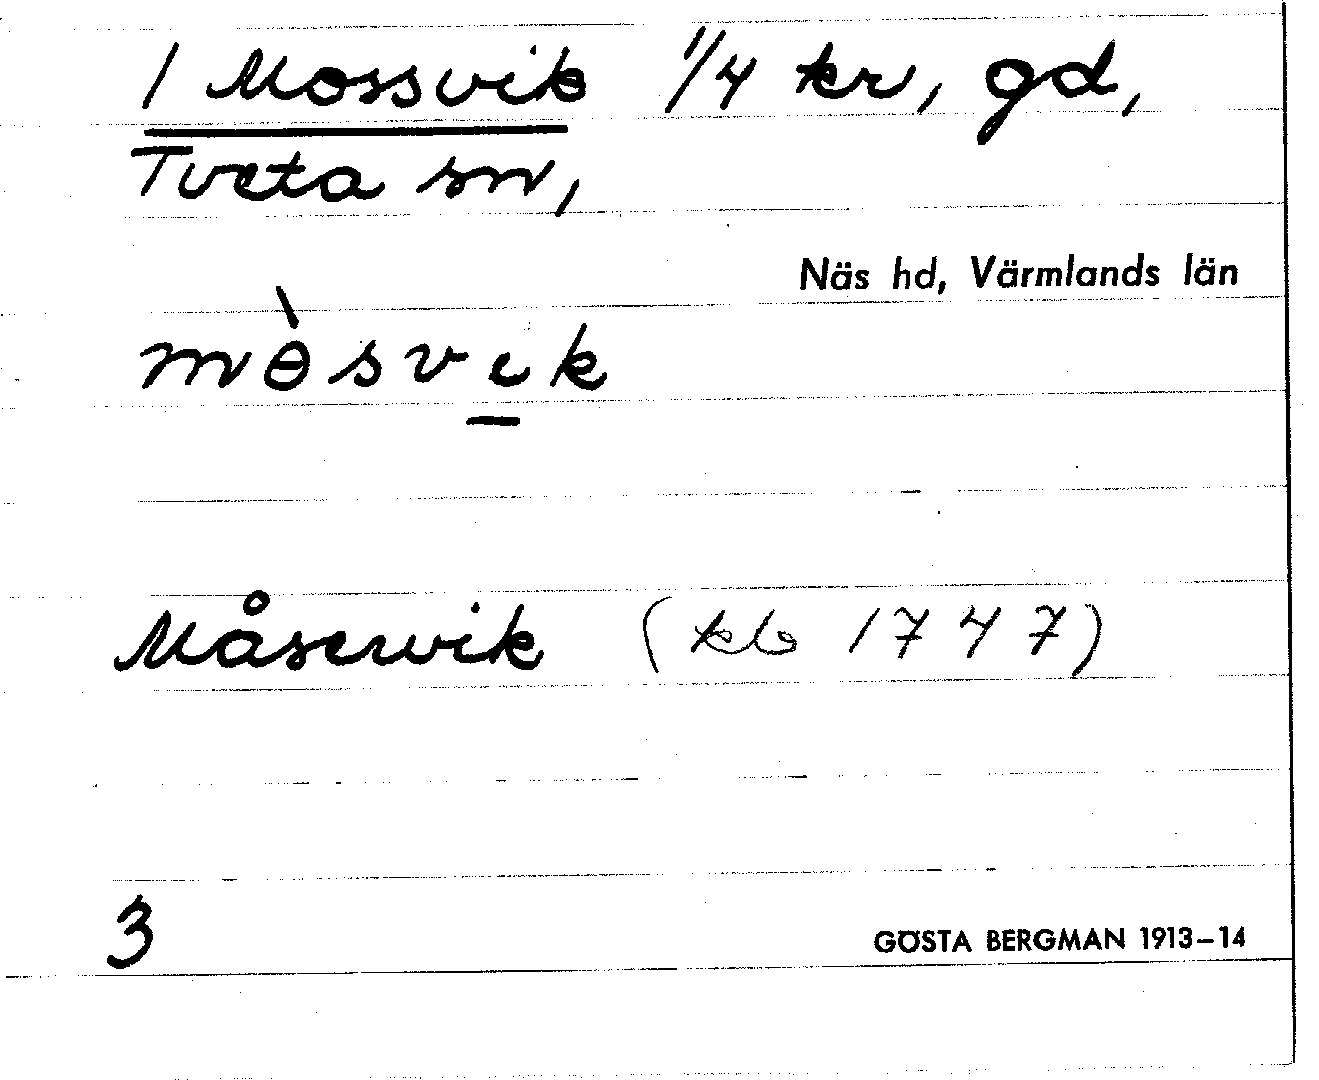 1 Mossvik 1/4 kr, gd,
Tveta sn,
Näs hd, Värmlands län
mɵ̀svik
Måserwik (kb 1747)
3
GÖSTA BERGMAN 1913–14